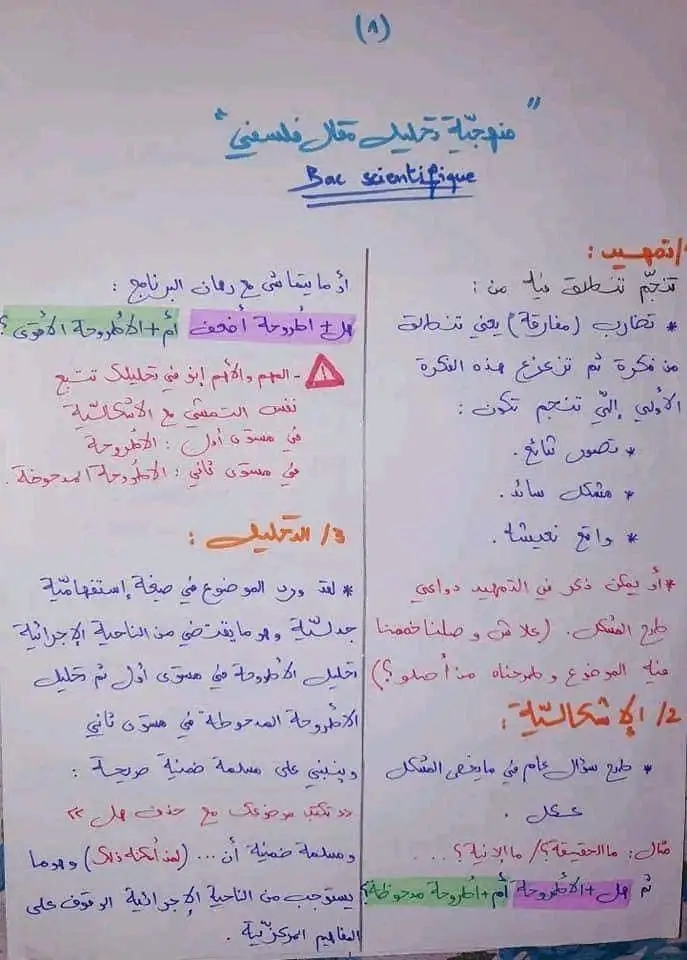 (٨)
" منهجيّة تحليل مقال فلسفي "
Bac scientifique
1/ تمهيد :
تنجّم تنطلق فيه من :
* تضارب (مفارقة) يعني تنطلق
من فكرة ثم تزعزع هذه الفكرة
الأولى إلّي تنجم تكون :
* تصور شائع .
* مشكل سائد .
* واقع نعيشه .
* أو يمكن ذكر في التمهيد دواعي
طرح المشكل . (علاش وصلنا خممنا
فيه الموضوع وطرحناه من أصلو ؟)
2/ الإشكاليّة :
* طرح سؤال عام في ما يخص المشكل
ككل .
مثال : ما الحقيقة ؟ / ما الإنية ؟ ...
ثم هل + الأطروحة أم + أطروحة مدحوظة ؟
أو ما يتماشى مع رهان البرنامج :
هل + أطروحة أضعف أم + الأطروحة الأقوى ؟
- المهم والأهم إنو في تحليلك تتبع
نفس التمشي مع الإشكاليّة
في مستوى أول : الأطروحة
في مستوى ثاني : الأطروحة المدحوضة .
3/ التحليل :
* لقد ورد الموضوع في صيغة إستفهاميّة
جدليّة وهو ما يقتضي من الناحية الإجرائية
تحليل الأطروحة في مستوى أول ثم تحليل
الأطروحة المدحوظة في مستوى ثاني
وينبني على مسلمة ضمنية صريحة :
>> تكتب موضوعك مع حذف هل <<
ومسلمة ضمنية أن ... (لمن أمكنه ذلك) وهو ما
يستوجب من الناحية الإجرائية الوقوف على
المفاهيم المركزيّة .